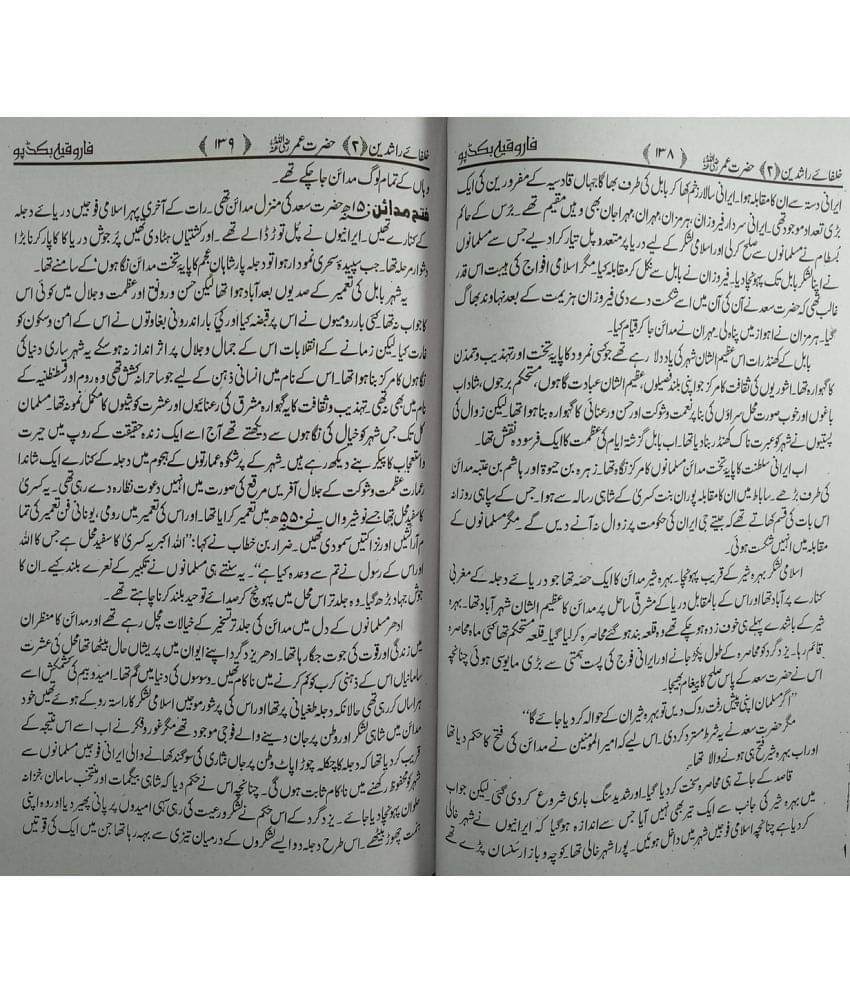 خلفائے راشدین (۲) حضرت عمر ؓ ﴿ ۱۳۸ ﴾ فاروقیہ بکڈپو
ایرانی دستہ سے ان کا مقابلہ ہوا۔ ایرانی سالار زخم کھا کر بابل کی طرف بھاگا جہاں قادسیہ کے مفرورین کی ایک
بڑی تعداد موجود تھی۔ ایرانی سردار فیروزان، ہرمزان، مہران، مہرا جان بھی وہیں مقیم تھے۔ برس کے حاکم
بُسطام نے مسلمانوں سے صلح کر لی اور اسلامی لشکر کے لیے دریا پر متعدد پل تیار کرا دیے جس سے مسلمانوں
نے اپنا لشکر بابل تک پہونچا دیا۔ فیروزان نے بابل سے نکل کر مقابلہ کیا۔ مگر اسلامی افواج کی ہیبت اس قدر
غالب تھی کہ حضرت سعد نے آن کی آن میں اسے شکست دے دی فیروزان ہزیمت کے بعد نہاوند بھاگ
گیا۔ ہرمزان نے اہواز میں پناہ لی۔ مہران نے مدائن جا کر قیام کیا۔
بابل کے کھنڈرات اس عظیم الشان شہر کی یاد دلا رہے تھے جو کسی نمرود کا پایۂ تخت اور تہذیب و تمدن
کا گہوارہ تھا۔ اشوریوں کی ثقافت کا مرکز جو اپنی بلند فصیلوں، عظیم الشان عبادت گاہوں، مستحکم برجوں، شاداب
باغوں اور خوب صورت محل سراؤں کی بنا پر نعمت و شوکت اور حسن و رعنائی کا گہوارہ بنا ہوا تھا۔ لیکن زوال کی
پستیوں نے شہر کو عبرت ناک کھنڈر بنا دیا تھا۔ اب بابل گزشتہ ایام کی عظمت کا ایک فرسودہ نقش تھا۔
اب ایرانی سلطنت کا پایۂ تخت مدائن مسلمانوں کا مرکز نگاہ تھا۔ زہرہ بن حیوۃ اور ہاشم بن عتبہ مدائن
کی طرف بڑھے۔ ساباط میں ان کا مقابلہ پوران بنت کسریٰ کے شاہی رسالہ سے ہوا۔ جس کے سپاہی روزانہ
اس بات کی قسم کھاتے تھے کہ جیتے جی ایران کی حکومت پر زوال نہ آنے دیں گے۔ مگر مسلمانوں کے
مقابلہ میں انہیں شکست ہوئی۔
اسلامی لشکر بہرہ شیر کے قریب پہونچا۔ بہرہ شیر مدائن کا ایک حصہ تھا جو دریائے دجلہ کے مغربی
کنارے پر آباد تھا اور اس کے بالمقابل دریا کے مشرقی ساحل پر مدائن کا عظیم الشان شہر آباد تھا۔ بہرہ
شیر کے باشندے پہلے ہی خوف زدہ ہو چکے تھے وہ قلعہ بند ہو گئے محاصرہ کر لیا گیا۔ قلعہ مستحکم تھا کئی ماہ محاصرہ
قائم رہا۔ یزدگرد کو محاصرہ کے طول پکڑ جانے اور ایرانی فوج کی پست ہمتی سے بڑی مایوسی ہوئی چنانچہ
اس نے حضرت سعد کے پاس صلح کا پیغام بھیجا۔
”اگر مسلمان اپنی پیش رفت روک دیں تو بہرہ شیر ان کے حوالہ کر دیا جائے گا“
مگر حضرت سعد نے یہ شرط مسترد کر دی۔ اس لیے کہ امیر المومنین نے مدائن کی فتح کا حکم دیا تھا
اور اب بہرہ شیر فتح ہی ہونے والا تھا۔
قاصد کے جاتے ہی محاصرہ سخت کر دیا گیا۔ اور شدید سنگ باری شروع کر دی گئی۔ لیکن جواب
میں بہرہ شیر کی جانب سے ایک تیر بھی نہیں آیا جس سے اندازہ ہو گیا کہ ایرانیوں نے شہر خالی
کر دیا ہے چنانچہ اسلامی فوجیں شہر میں داخل ہوئیں۔ پورا شہر خالی تھا۔ کوچہ و بازار سنسان پڑے تھے
خلفائے راشدین (۲) حضرت عمر ؓ ﴿ ۱۳۹ ﴾ فاروقیہ بکڈپو
وہاں کے تمام لوگ مدائن جا چکے تھے۔
فتح مدائن: ۱۵ھ حضرت سعد کی منزل مدائن تھی۔ رات کے آخری پہر اسلامی فوجیں دریائے دجلہ
کے کنارے تھیں۔ ایرانیوں نے پُل توڑ ڈالے تھے۔ اور کشتیاں ہٹا دی تھیں پُر جوش دریا کا پار کرنا بڑا
دشوار مرحلہ تھا۔ جب سپیدۂ سحری نمودار ہوا تو دجلہ پار شاہان عجم کا پایۂ تخت مدائن نگاہوں کے سامنے تھا۔
یہ شہر بابل کی تعمیر کے صدیوں بعد آباد ہوا تھا لیکن حسن و رونق اور عظمت و جلال میں کوئی اس
کا جواب نہ تھا کئی بار رومیوں نے اس پر قبضہ کیا اور کئی بار اندرونی بغاوتوں نے اس کے امن و سکون کو
غارت کیا۔ لیکن زمانے کے انقلابات اس کے جمال و جلال پر اثر انداز نہ ہو سکے یہ شہر ساری دنیا کی
نگاہوں کا مرکز بنا ہوا تھا۔ اس کے نام میں انسانی ذہن کے لیے جو ساحرانہ کشش تھی وہ روم اور قسطنطنیہ کے
نام میں بھی نہ تھی۔ تہذیب و ثقافت کا یہ گہوارہ مشرق کی رعنائیوں اور عشرت کوشیوں کا مکمل نمونہ تھا۔ مسلمان
کل تک جس شہر کو خیال کی نگاہوں سے دیکھتے تھے آج اسے ایک زندہ حقیقت کے روپ میں حیرت
و استعجاب کا پیکر بنے دیکھ رہے ہیں۔ شہر کے پرشکوہ عمارتوں کے ہجوم میں دجلہ کے کنارے ایک شاندا
عمارت عظمت و شوکت کے جلال آفریں مرقع کی صورت میں انہیں دعوت نظارہ دے رہی تھی۔ یہ کسریٰ
کا سفید محل تھا جسے نوشیرواں نے ۵۵۰ھ میں تعمیر کرایا تھا۔ اور اس کی تعمیر میں رومی، یونانی فن تعمیر کی تما
م آرائشیں اور نزاکتیں سمو دی تھیں۔ ضرار بن خطاب نے کہا: ”اللہ اکبر یہ کسریٰ کا سفید محل ہے جس کا اللہ
اور اس کے رسول نے تم سے وعدہ کیا ہے“۔ یہ سنتے ہی مسلمانوں نے تکبیر کے نعرے بلند کیے۔ ان کا
جوش جہاد بڑھ گیا۔ وہ جلد تر اس محل میں پہونچ کر صدائے توحید بلند کرنا چاہتے تھے۔
ادھر مسلمانوں کے دل میں مدائن کی جلد تر تسخیر کے خیالات مچل رہے تھے اور مدائن کا منظر ان
میں زندگی اور قوت کی جوت جگا رہا تھا۔ ادھر یزدگرد اپنے ایوان میں پریشاں حال بیٹھا تھا محل کی عشرت
سامانیاں اس کے ذہنی کرب کو کم کرنے میں ناکام تھیں۔ وسوسوں کی دنیا میں گم تھا۔ امید و بیم کی کشمکش اسے
ہراساں کر رہی تھی حالانکہ دجلہ طغیانی پر تھا اور اس کی پر شور موجیں اسلامی لشکر کا راستہ روکے ہوئے تھیں خود
مدائن میں شاہی لشکر اور وطن پر جان دینے والے فوجی موجود تھے مگر غور و فکر نے اب اسے اس نتیجہ کے
قریب کر دیا تھا کہ دجلہ کا چکلہ چوڑا پاٹ وطن پر جاں نثاری کی سوگند کھانے والی ایرانی فوجیں مسلمانوں سے
شہر کو محفوظ رکھنے میں ناکام ثابت ہوں گی۔ چنانچہ اس نے حکم دیا کہ شاہی بیگمات اور منتخب سامان بخزانہ
حلوان پہونچا دیا جائے۔ یزدگرد کے اس حکم نے لشکر و رعیت کی رہی سہی امیدوں پر پانی پھیر دیا اور وہ اپنی
ہمت چھوڑ بیٹھے۔ اس طرح دجلہ دو ایسے لشکروں کے درمیان تیزی سے بہہ رہا تھا جن میں ایک کی قوتیں